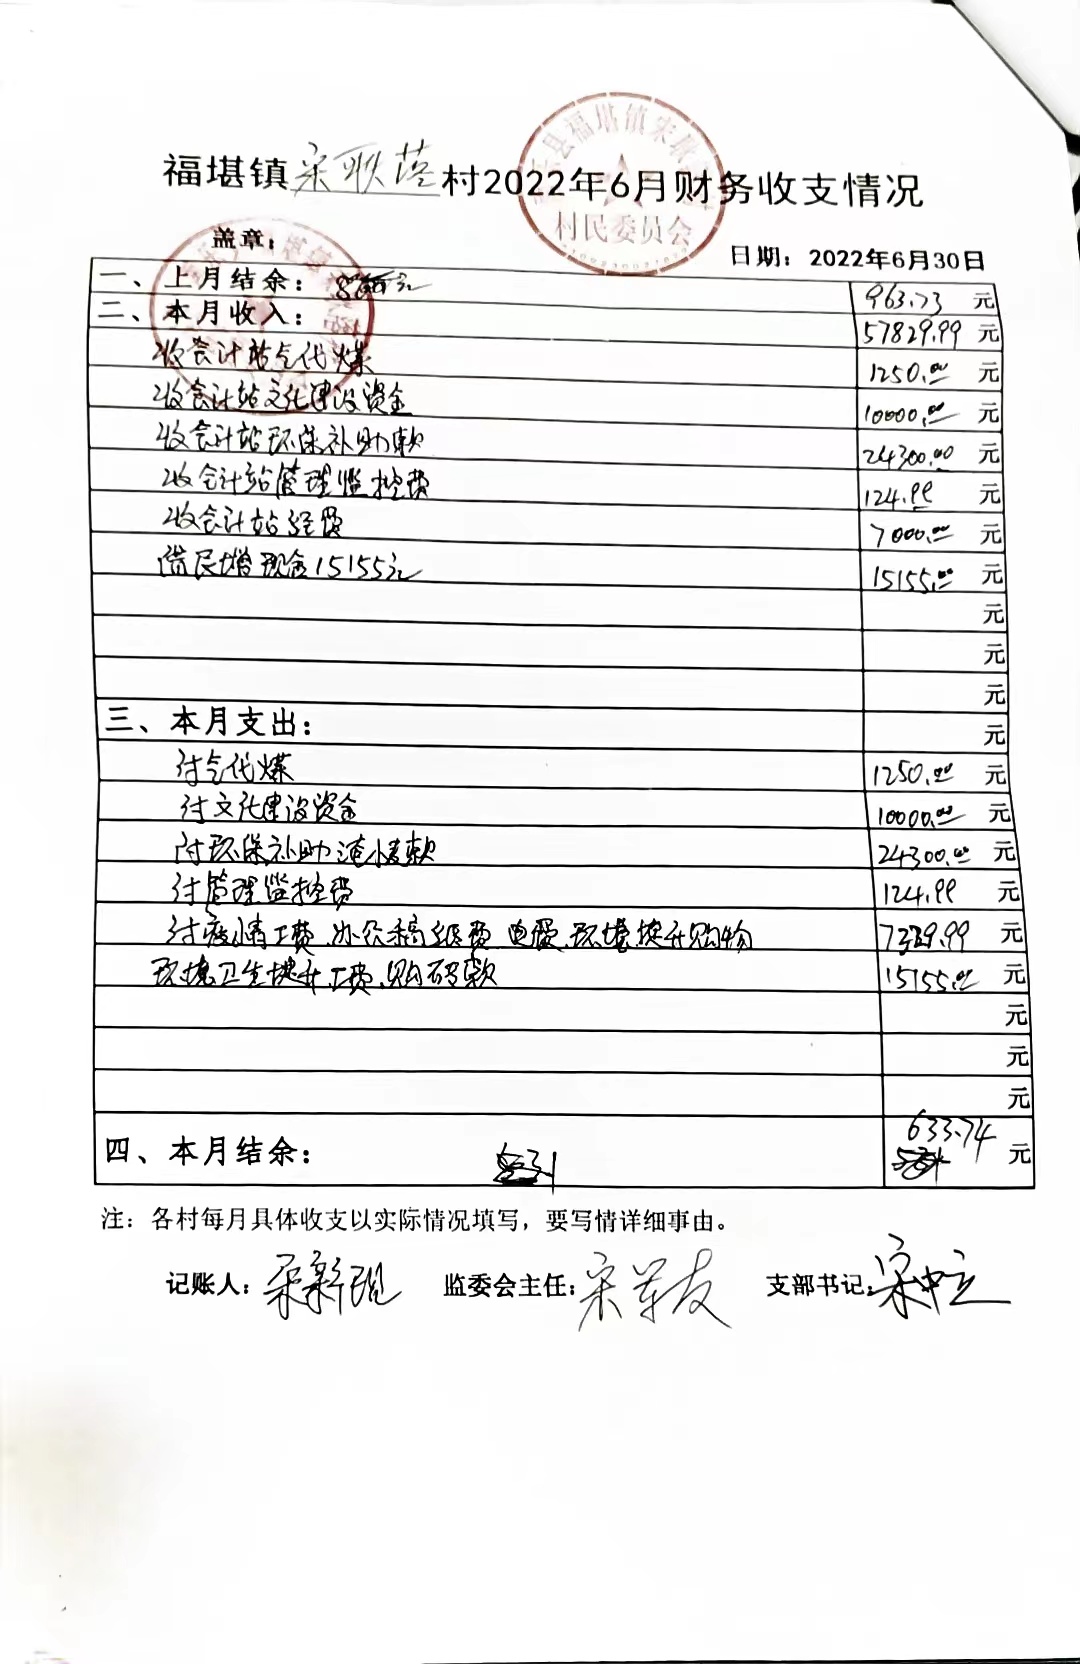 福堪镇宋耿落村2022年6月财务收支情况
村民委员会
盖章：
日期：2022年6月30日
一、上月结余： 963.73 元
二、本月收入： 57829.99 元
收会计站气代煤 1250.00 元
收会计站文化建设资金 10000.00 元
收会计站环保补助款 24300.00 元
收会计站管理监控费 124.99 元
收会计站经费 7000.00 元
借民增现金15155元 15155.00 元
元
元
元
三、本月支出： 元
付气代煤 1250.00 元
付文化建设资金 10000.00 元
付环保补助淹小麦款 24300.00 元
付管理监控费 124.99 元
付疫情工费.办公稿纸费.电费.环境提升购物 7329.99 元
环境卫生提升工费.购砖款 15155.00 元
元
元
元
四、本月结余： 633.74 元
注：各村每月具体收支以实际情况填写，要写情详细事由。
记账人： 监委会主任：宋军友 支部书记：宋中立